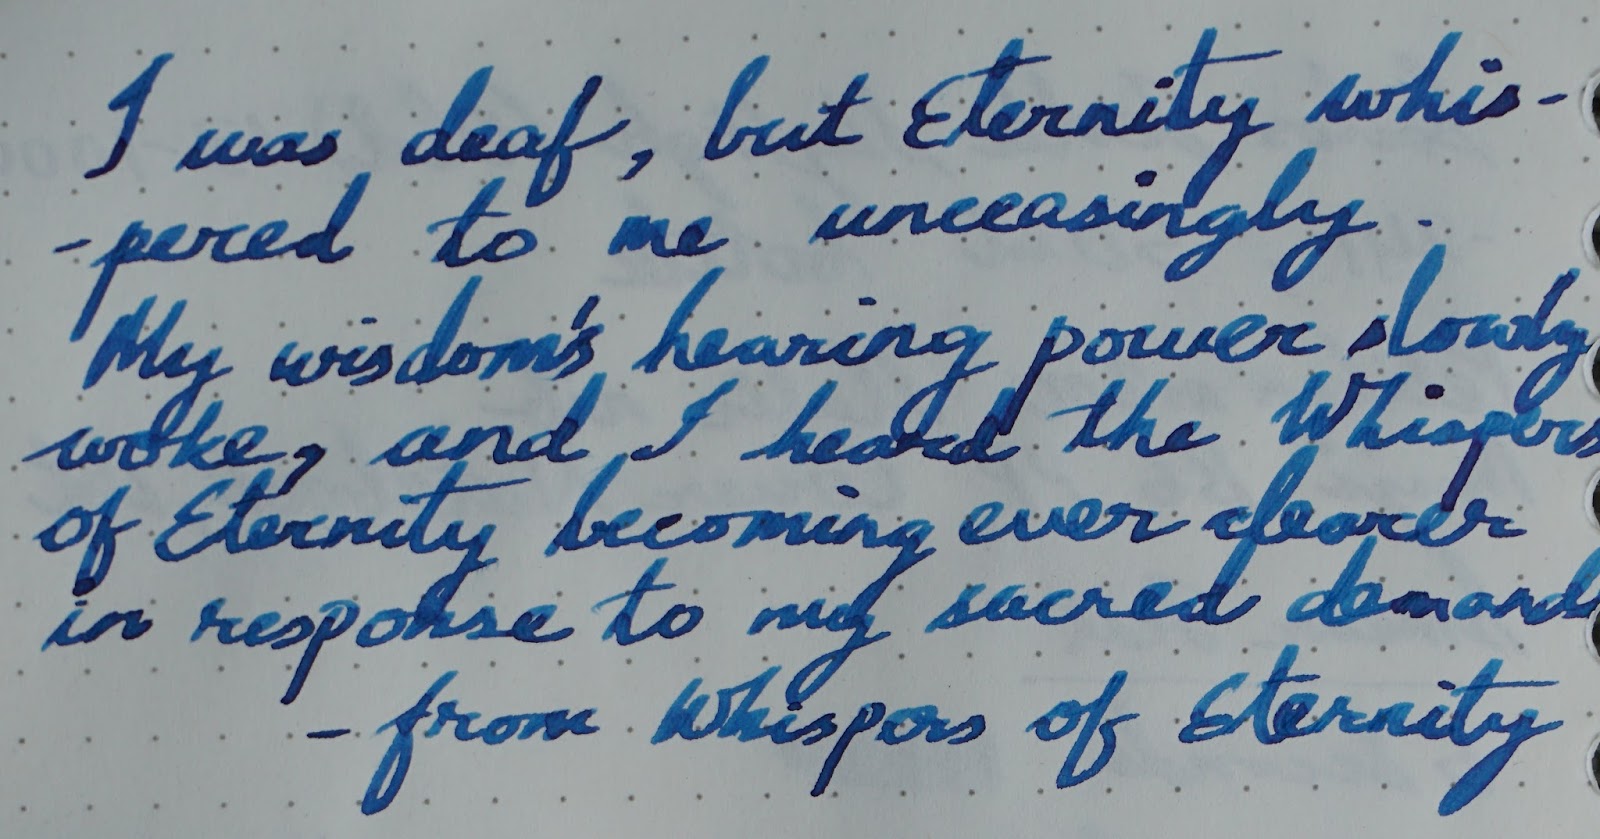 I was deaf, but Eternity whis-
-pered to me unceasingly.
My wisdom's hearing power slowly
woke, and I heard the Whispers
of Eternity becoming ever clearer
in response to my sacred demands
- from Whispers of Eternity